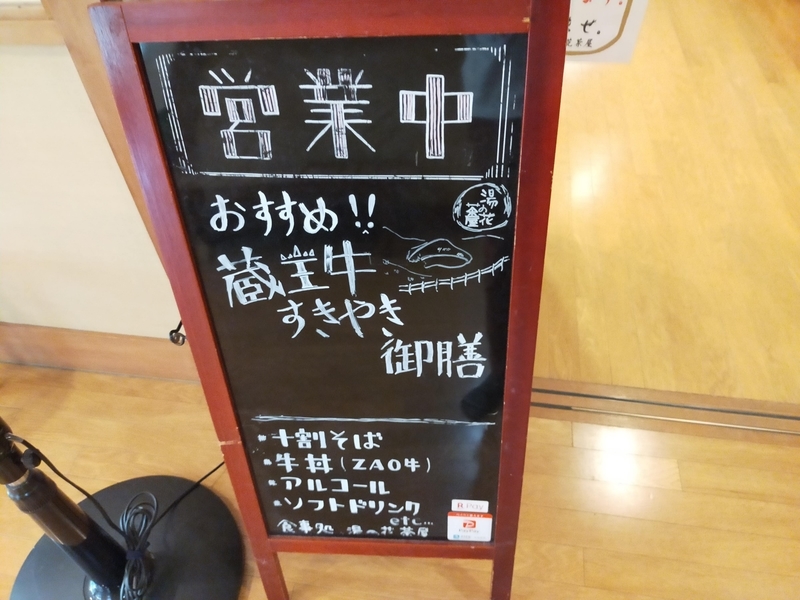 営業中
おすすめ!!
湯の花
蔵王牛
すきやき
御膳
・十割そば
・牛丼(ZAO牛)
・アルコール
・ソフトドリンク
etc...
食事処 湯の花茶屋
R Pay
ませ。
花茶屋